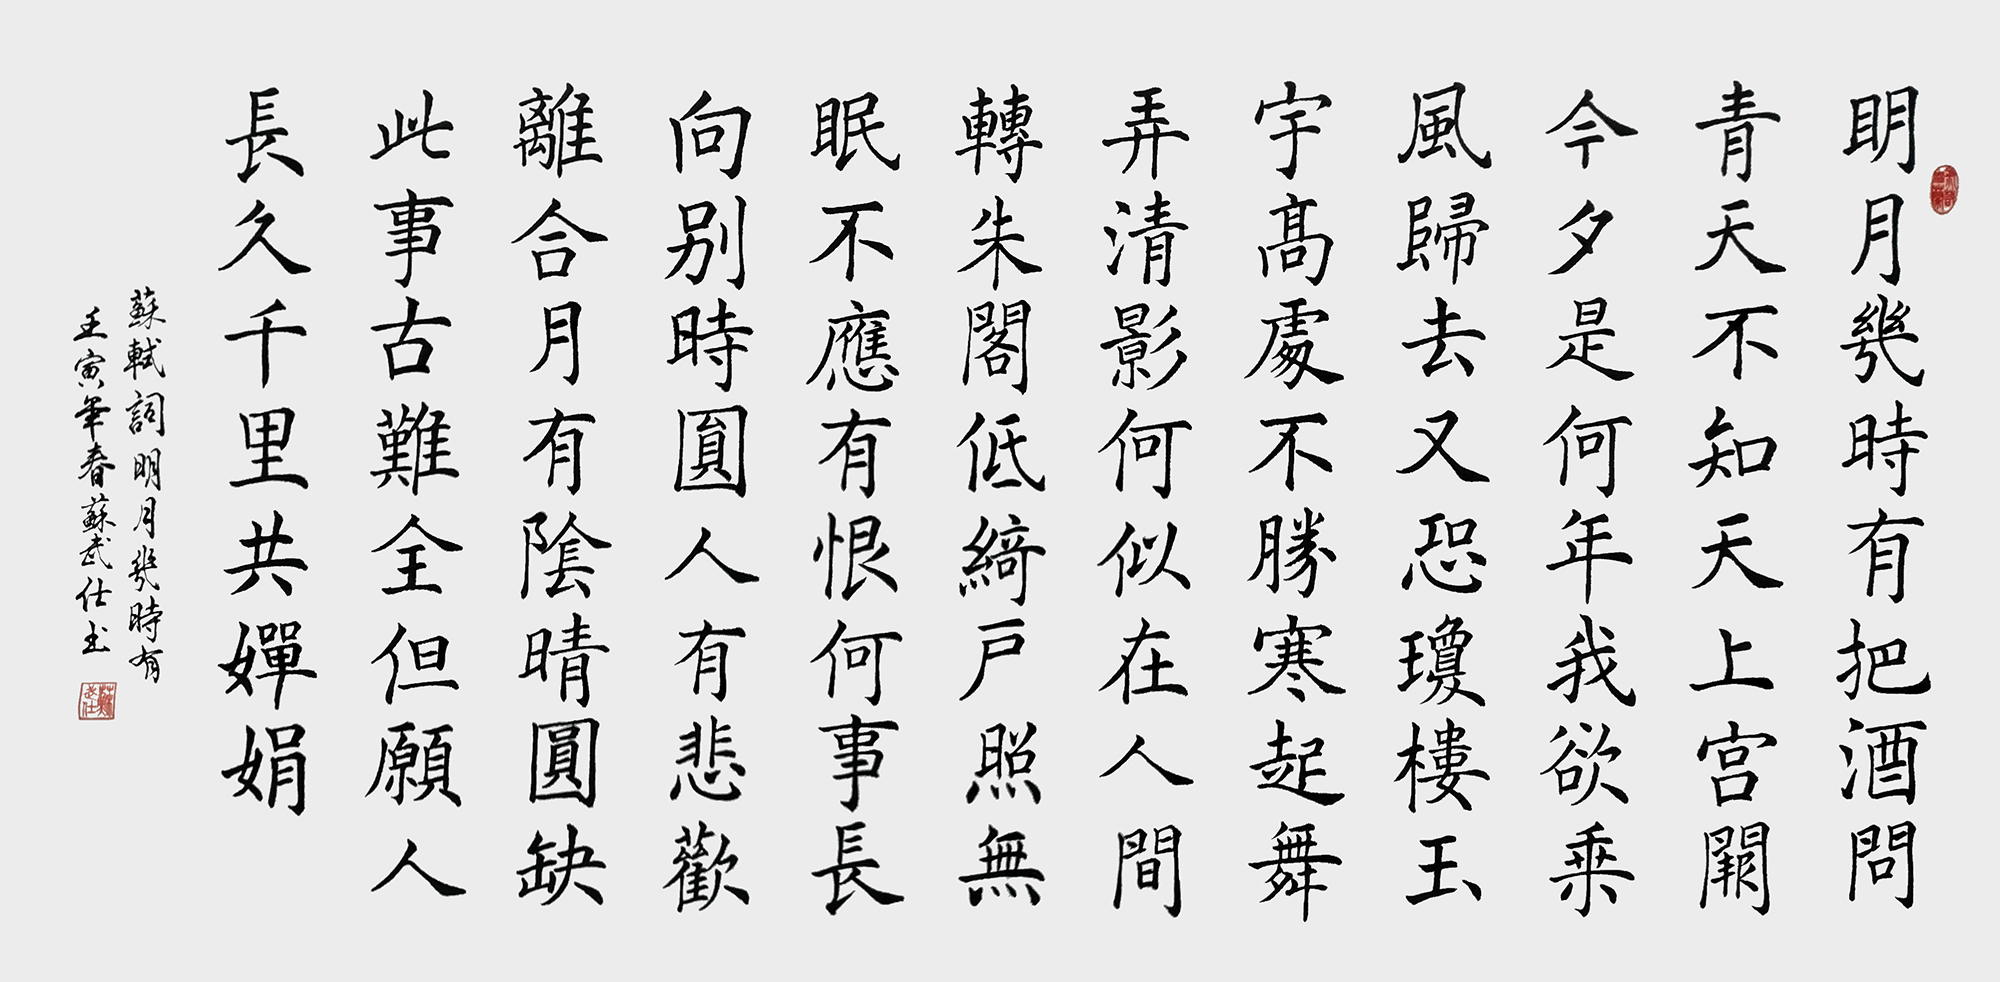 明月幾時有把酒問
青天不知天上宫闕
今夕是何年我欲乘
風歸去又恐瓊樓玉
宇高處不勝寒起舞
弄清影何似在人間
轉朱閣低綺戶照無
眠不應有恨何事長
向别時圓人有悲歡
離合月有陰晴圓缺
此事古難全但願人
長久千里共嬋娟
蘇軾詞明月幾時有
壬寅年春蘇武仕书
蘇武仕